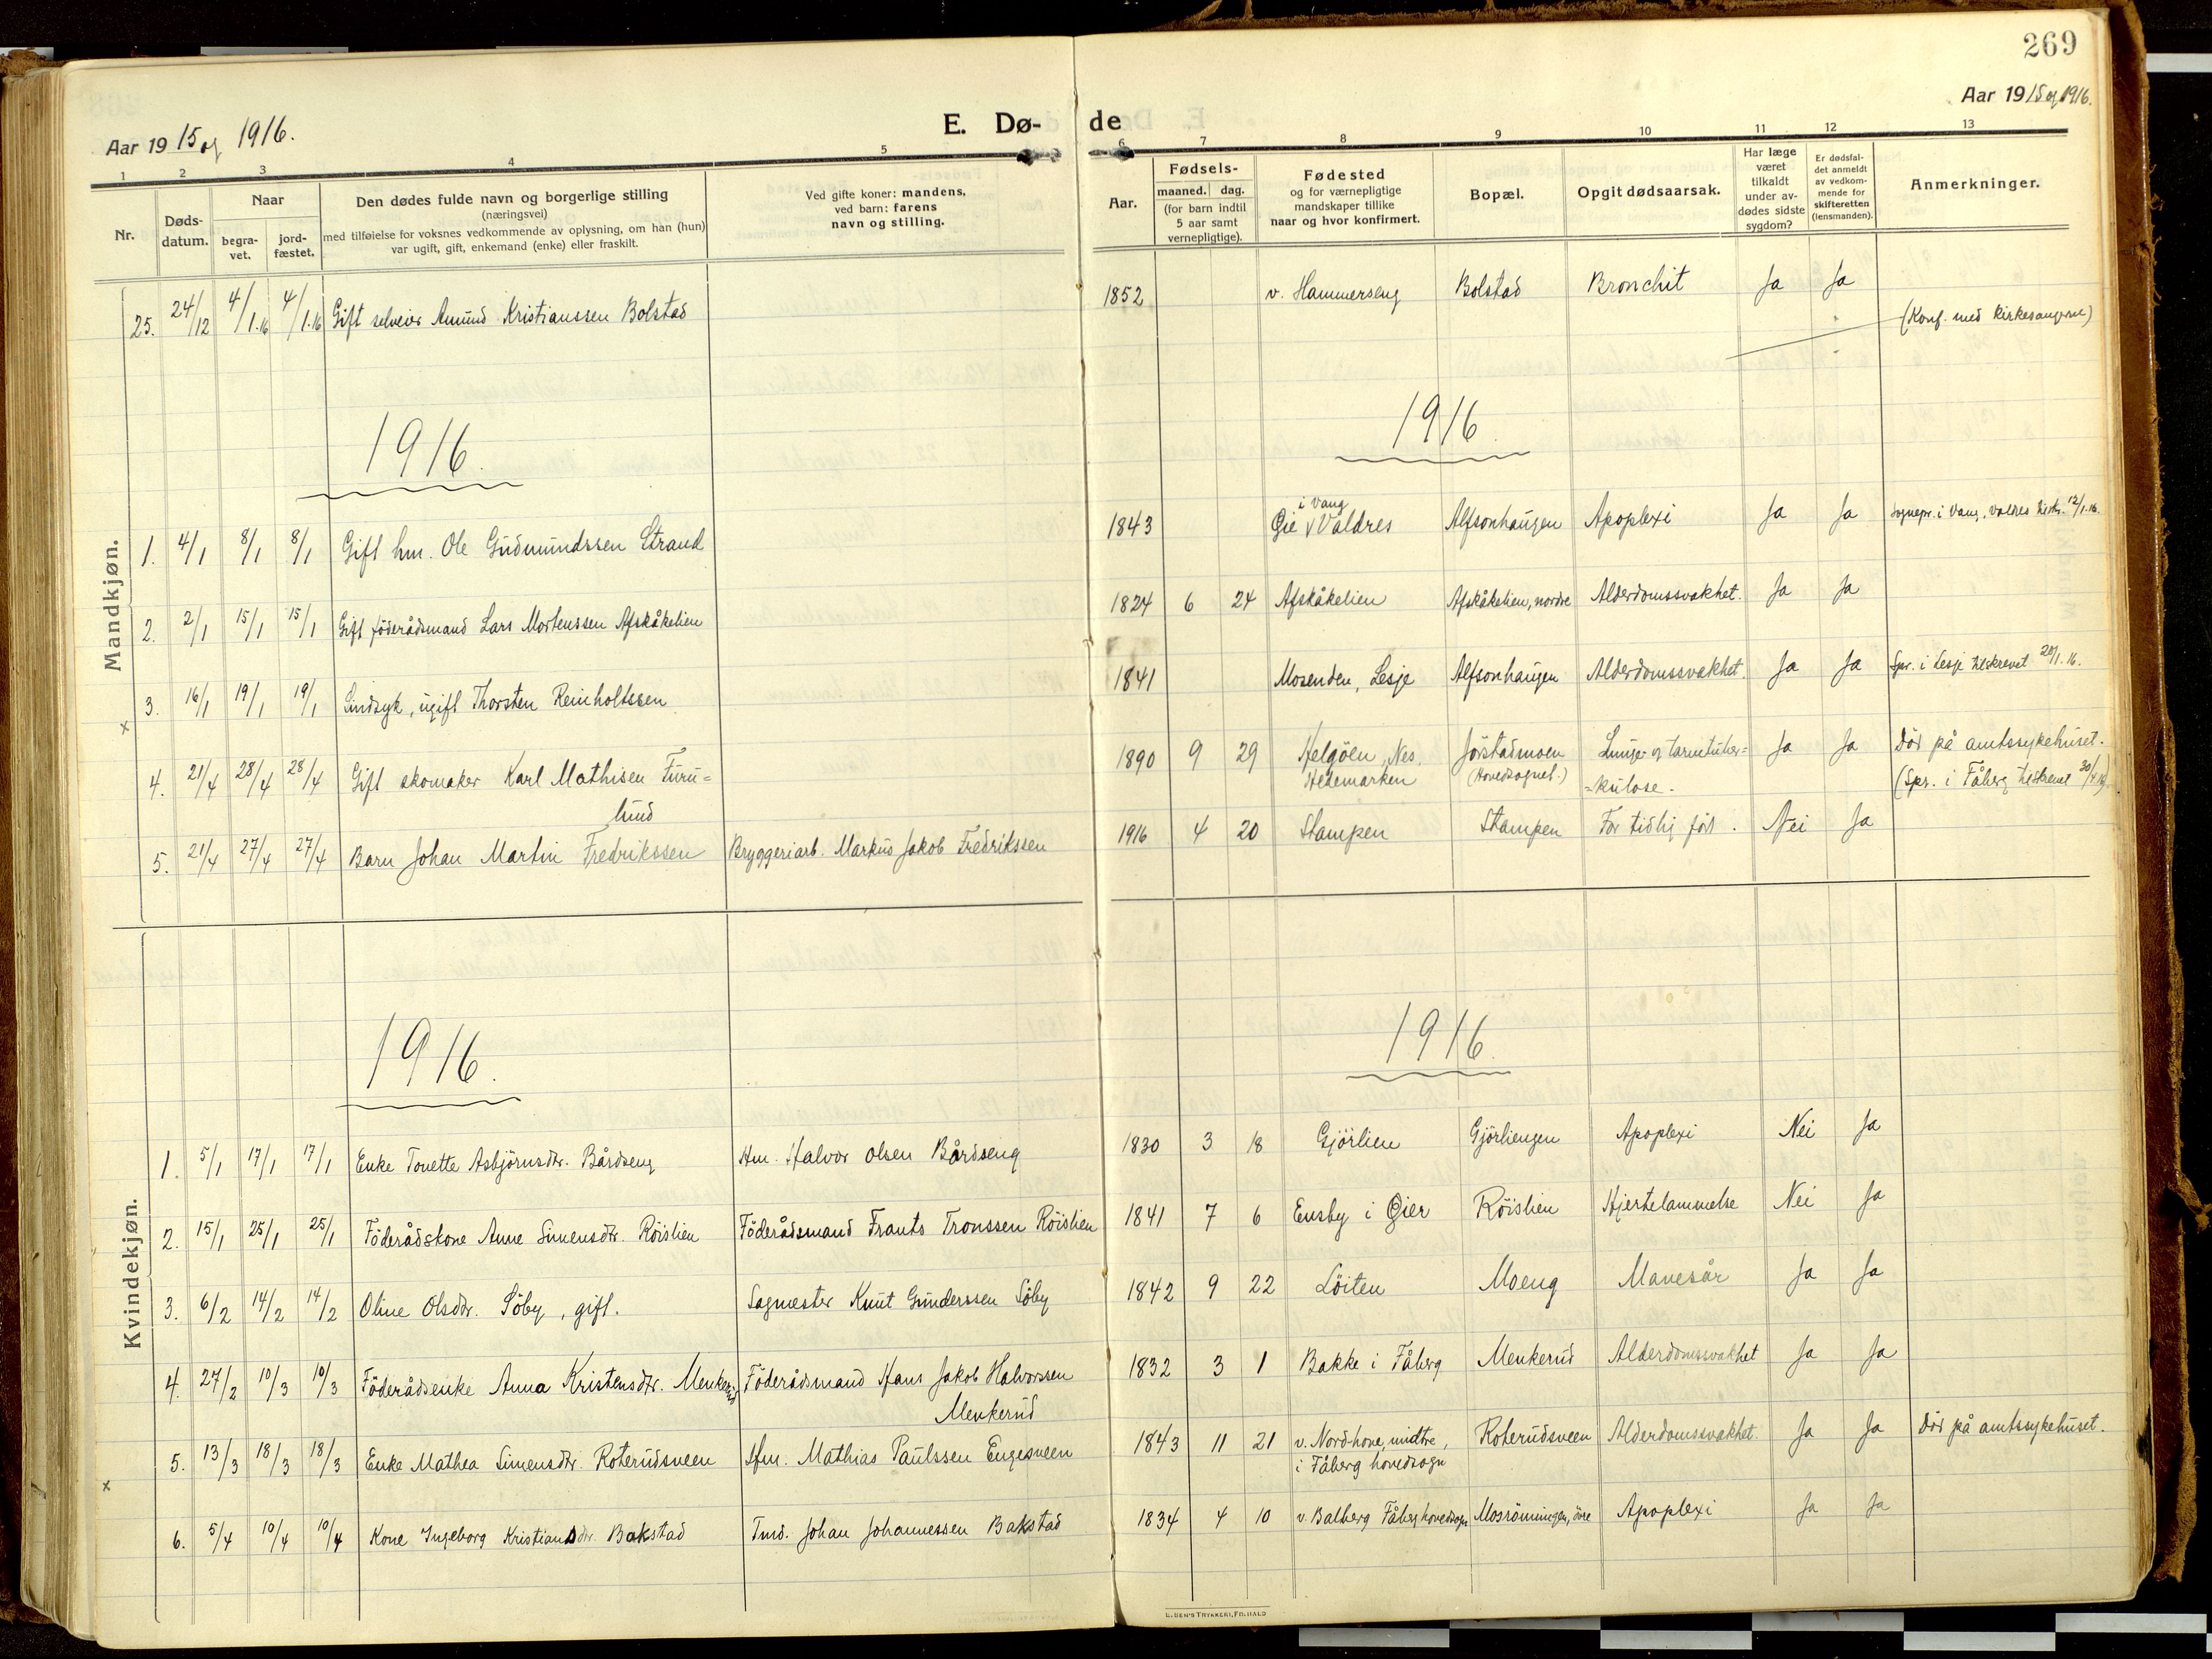 269
Aar 1915 og 1916.
E. Dø-
de
Aar 1915 og 1916.
1 2 3 4 5 6 7 8 9 10 11 12 13
Nr.
Døds-
datum.
Naar
begra-
vet.
jord-
fæstet.
Den dødes fulde navn og borgerlige stilling
(næringsvei)
med tilføielse for voksnes vedkommende av oplysning, om han (hun)
var ugift, gift, enkemand (enke) eller fraskilt.
Ved gifte koner: mandens,
ved barn: farens
navn og stilling.
Aar.
Fødsels-
maaned. dag.
(for barn indtil
5 aar samt
vernepligtige).
Fødested
og for værnepligtige
mandskaper tillike
naar og hvor konfirmert.
Bopæl.
Opgit dødsaarsak.
Har læge
været
tilkaldt
under av-
dødes sidste
sygdom?
Er dødsfal-
det anmeldt
av vedkom-
mende for
skifteretten
(lensmanden).
Anmerkninger.
Mandkjøn.
25. 24/12 4/1.16 4/1.16 Gift selveier Amund Kristianssen Bolstad 1852 v. Hammerseng Bolstad Bronchit Ja Ja
(Konf. med kirkesangerne)
1916.
1916.
i Vang
1. 4/1 8/1 8/1 Gift hm. Ole Gudmundssen Strand 1843 Øie v Valdres Alfsonhaugen Apoplexi Ja Ja Sognepr. i Vang, Valdres tilskr. 12/1.16.
2. 2/1 15/1 15/1 Gift föderådsmand Lars Mortenssen Afskåkelien 1824 6 24 Afskåkelien Afskåkelien, nordre Alderdomssvakhet. Ja Ja
x 3. 16/1 19/1 19/1 Sindsyk, ugift Thorsten Reinholtssen 1841 Mosenden, Lesje Alfsonhaugen Alderdomssvakhet. Ja Ja Spr. i Lesje tilskrevet 20/1.16.
4. 21/4 28/4 28/4 Gift skomaker Karl Mathisen Furu= 1890 9 29 Helgöen, Nes. Jörstadmoen Lunge- og tarmtuber= Ja Ja Död på amtssykehuset.
lund Hedemarken (Hovedsognet.) =kulose. (Spr. i Fåberg tilskrevet 30/4.16)
5. 21/4 27/4 27/4 Barn Johan Martin Fredrikssen Bryggeriarb. Markus Jakob Fredrikssen 1916 4 20 Stampen Stampen For tidlig föd. Nei Ja
Kvindekjøn.
1916.
1916.
1. 5/1 17/1 17/1 Enke Tonette Asbjörnsdtr. Bårdseng Hm. Halvor Olsen Bårdseng 1830 3 18 Gjörlien Gjörliengen Apoplexi Nei Ja
2. 15/1 25/1 25/1 Föderådskone Anne Simensdtr. Röislien Föderådsmand Frants Tronssen Röislien 1841 7 6 Ensby i Øier Röislien Hjertelammelse Nei Ja
3. 6/2 14/2 14/2 Oline Olsdtr. Söby, gift. Sagmester Knut Gunderssen Söby 1842 9 22 Löiten Moeng Mavesår Ja Ja
4. 27/2 10/3 10/3 Föderådsenke Anna Kristensdtr. Menkerud Föderådsmand Hans Jakob Halvorssen 1832 3 1 Bakke i Fåberg Menkerud Alderdomssvakhet Ja Ja
Menkerud
x 5. 13/3 18/3 18/3 Enke Mathea Simensdtr. Roterudsveen Hm. Mathias Paulssen Engesveen 1843 11 21 v. Nordhove, midtre, Roterudsveen Alderdomssvakhet Ja Ja Död på amtssykehuset.
i Fåberg hovedsogn
6. 5/4 10/4 10/4 Kone Ingeborg Kristiansdtr. Bakstad Tmd. Johan Johannessen Bakstad 1834 4 10 v. Balberg Fåberg hovedsogn Mosröningen, övre Apoplexi Ja Ja